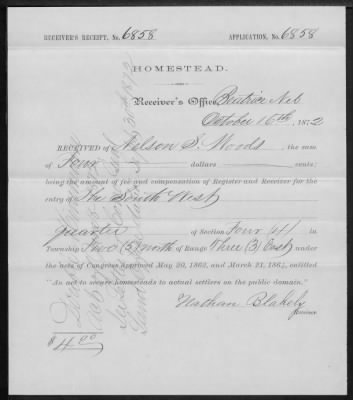 RECEIVER'S RECEIPT, No. 6858 APPLICATION, No. 6858
HOMESTEAD.
Receiver's Office, Beatrice Neb
October 16th, 1872
RECEIVED of Nelson S. Woods, the sum
of Four dollars cents;
being the amount of fee and compensation of Register and Receiver for the
entry of The South West
quarter of Section Four (4) in
Township (5) North of Range Three (3) East under
the acts of Congress approved May 20, 1862, and March 21, 1864, entitled
"An act to secure homesteads to actual settlers on the public domain."
Nathan Blakely
Receiver.
$4.00